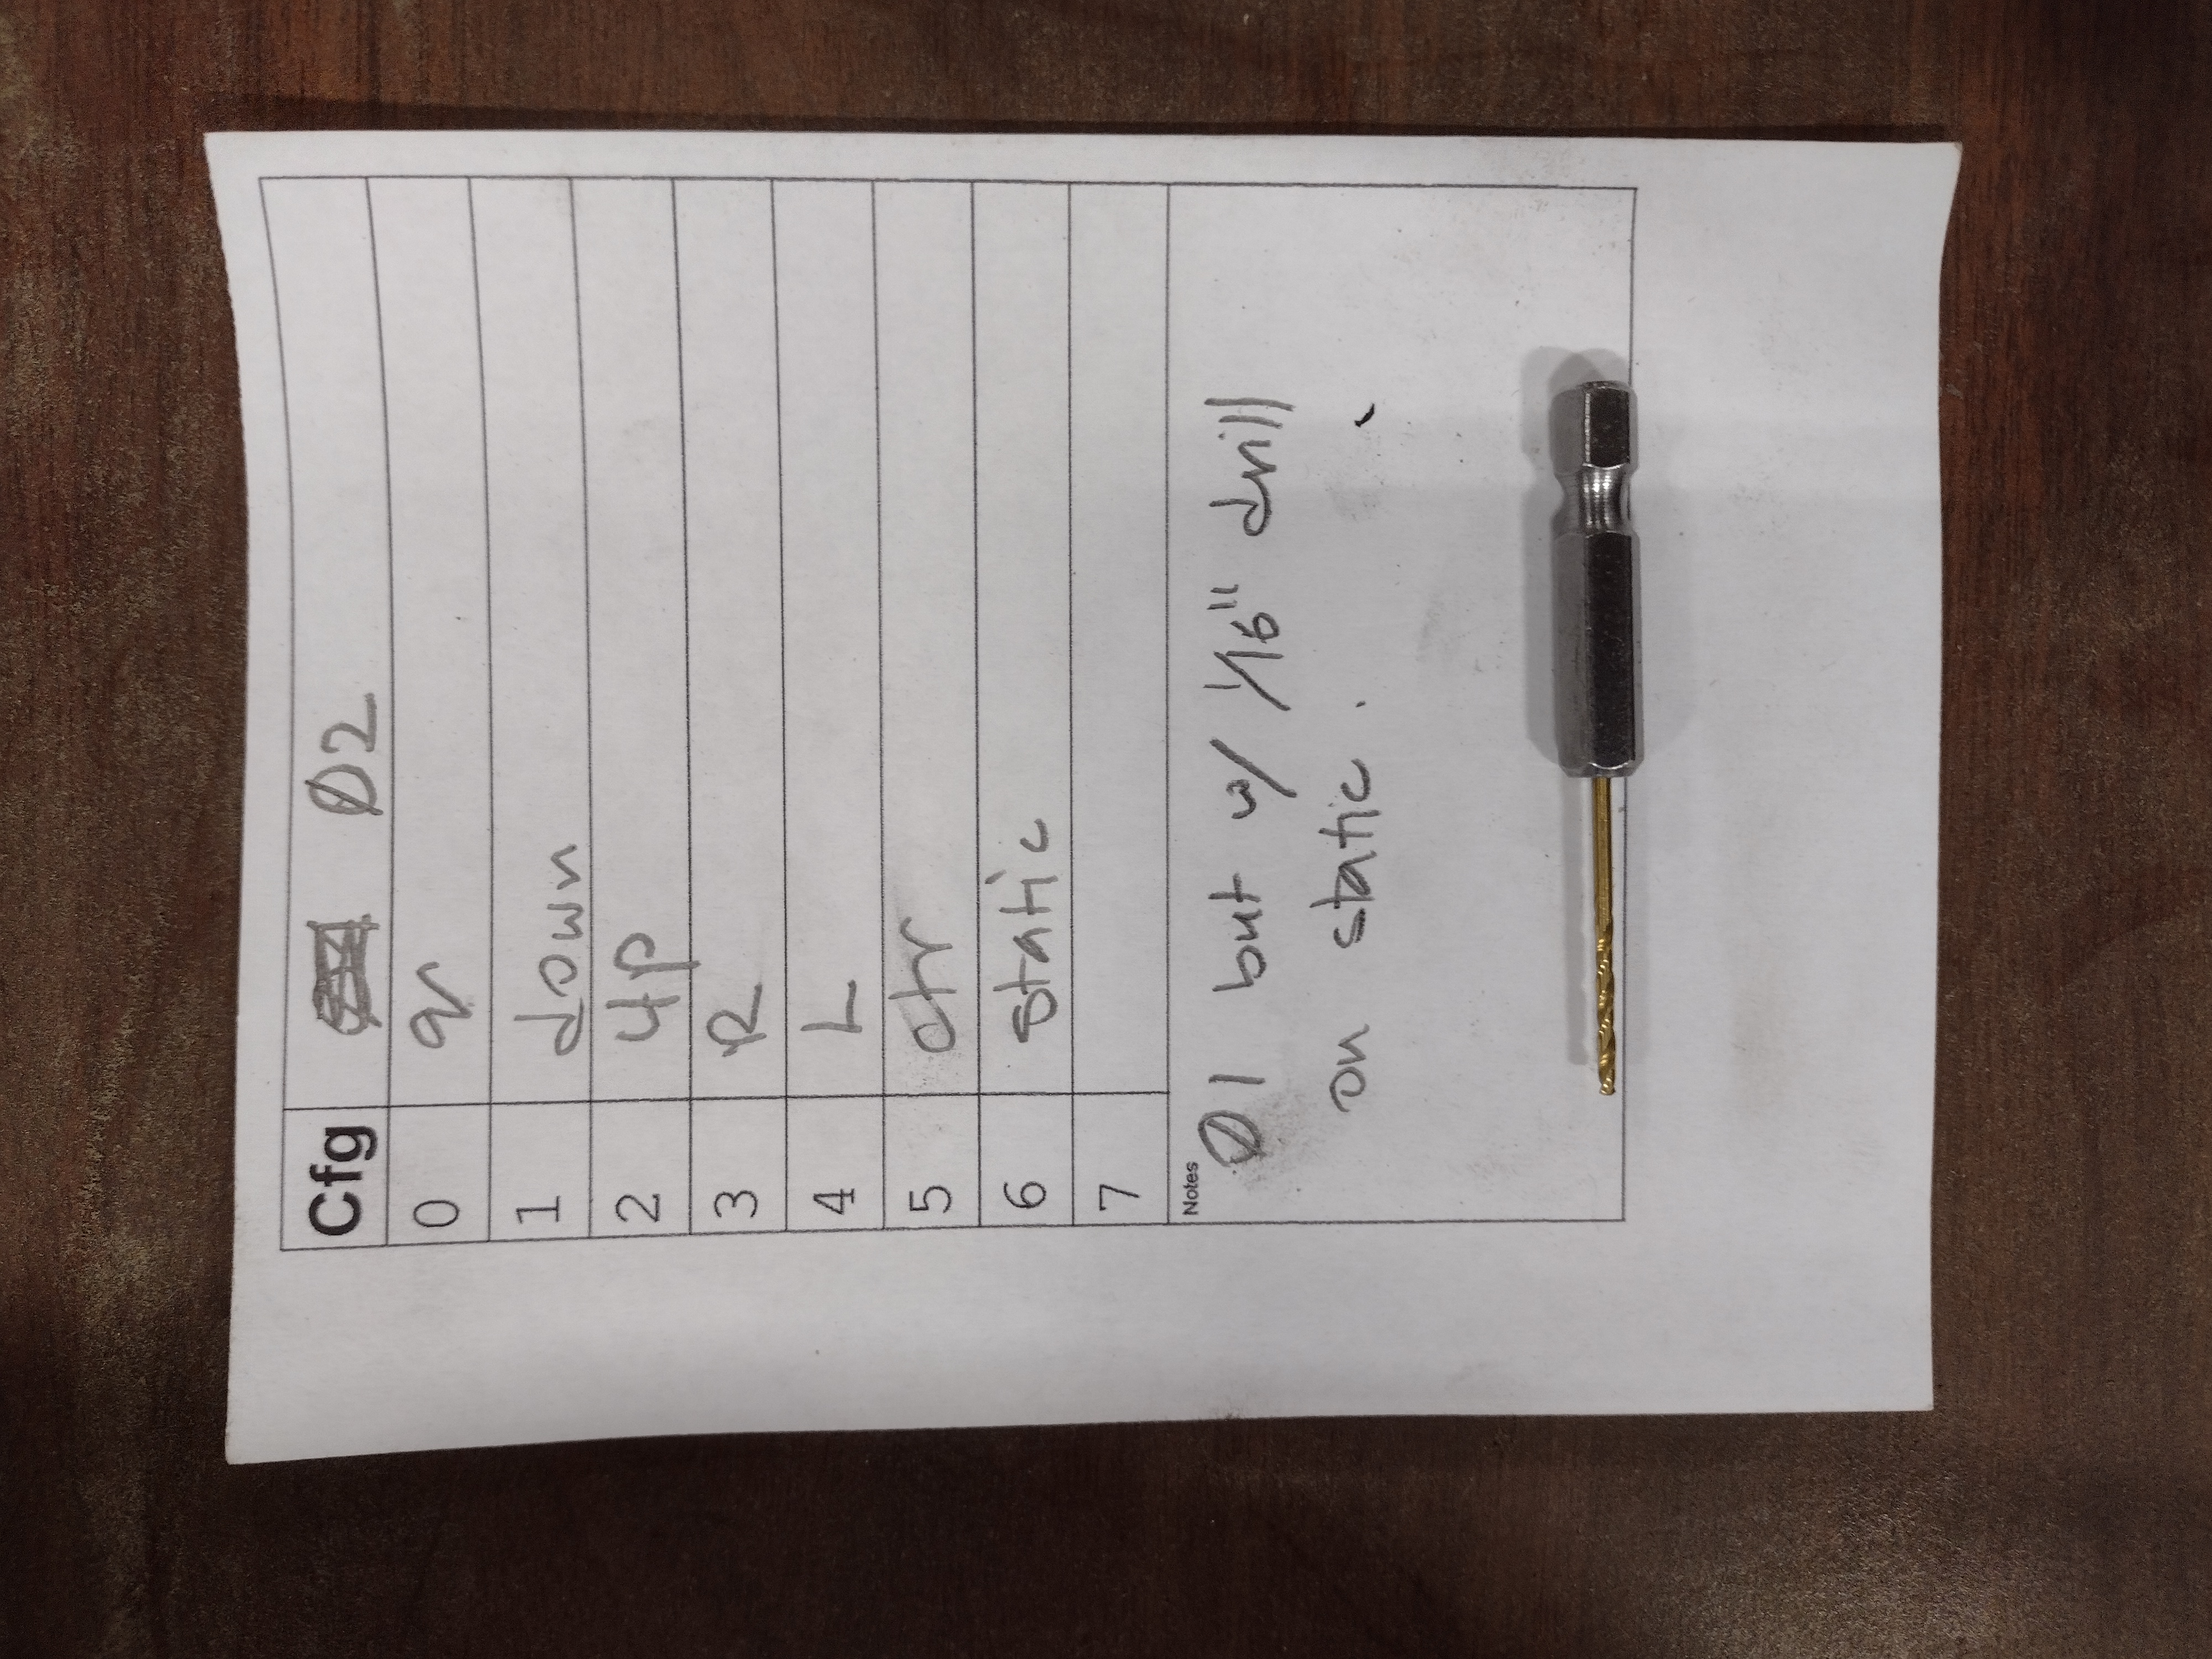 Cfg Ø2
0 q
1 down
2 up
3 R
4 L
5 ctr
6 static
7
Notes
Ø1 but w/ 1/16" drill
on static.